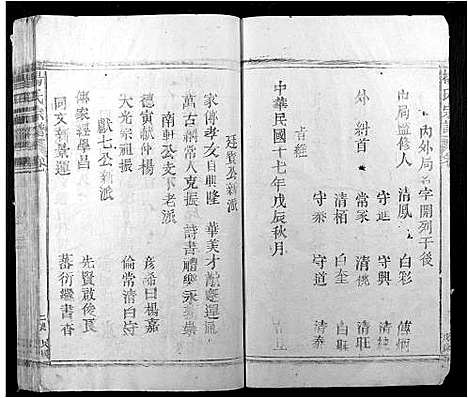 楊氏宗譜
內外局名字開列于後
內局監修人 清鳳 白彩
守進 守興
外斜首 常家 清佻 清旺
清栢 白奎 白
守泰 守道 清泰
吉旦
中華民國十七年戊辰秋月
廷貴公新派
家傳孝友自興隆 華美才猷慶運
萬古綱常人克振 詩書禮樂永 崇
南軒公支下老派
德寅猷仲楊 彥希曰楊嘉
大光宗祖振 倫常清白守
獻七公新派
傳家經學昌 先賢啟後良
同文新景運 蕃衍繼書香
楊氏宗譜